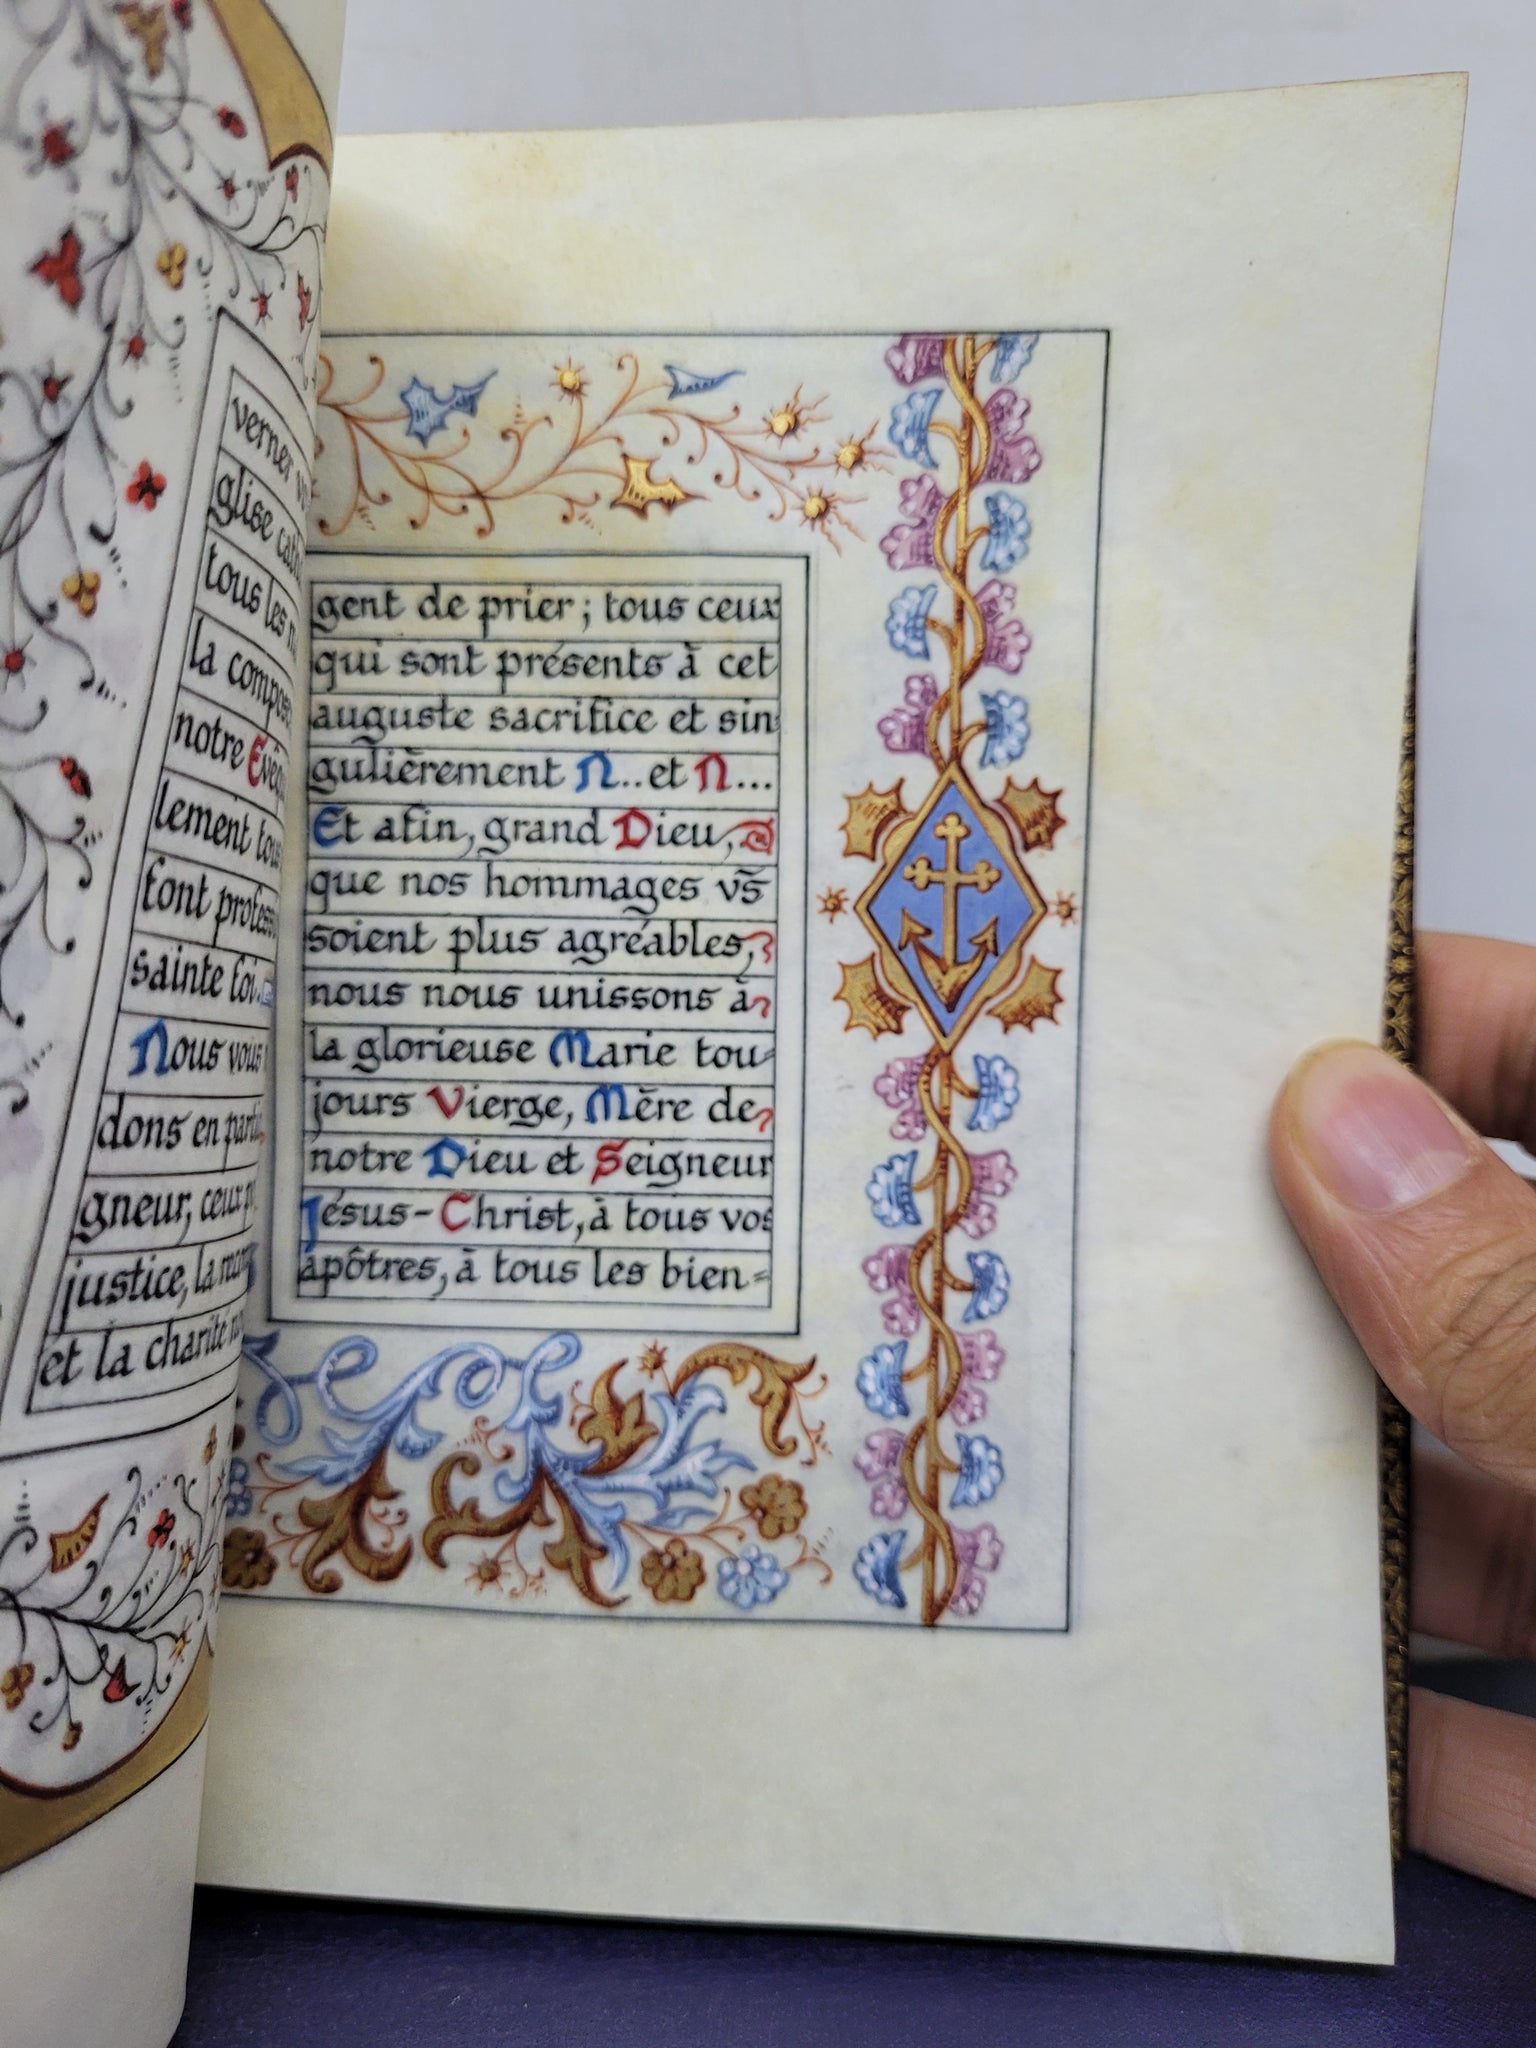 verner
glise
tous les
la
notre
lement
font
sainte foi.
Nous vous
dons en
gneur, ceux
justice, la
et la charité
gent de prier ; tous ceux
qui sont présents à cet
auguste sacrifice et sin
gulièrement N... et N...
Et afin, grand Dieu,
que nos hommages vs̄
soient plus agréables,
nous nous unissons à
la glorieuse Marie tou=
jours Vierge, Mère de
notre Dieu et Seigneur
Jésus-Christ, à tous vos
apôtres, à tous les bien=